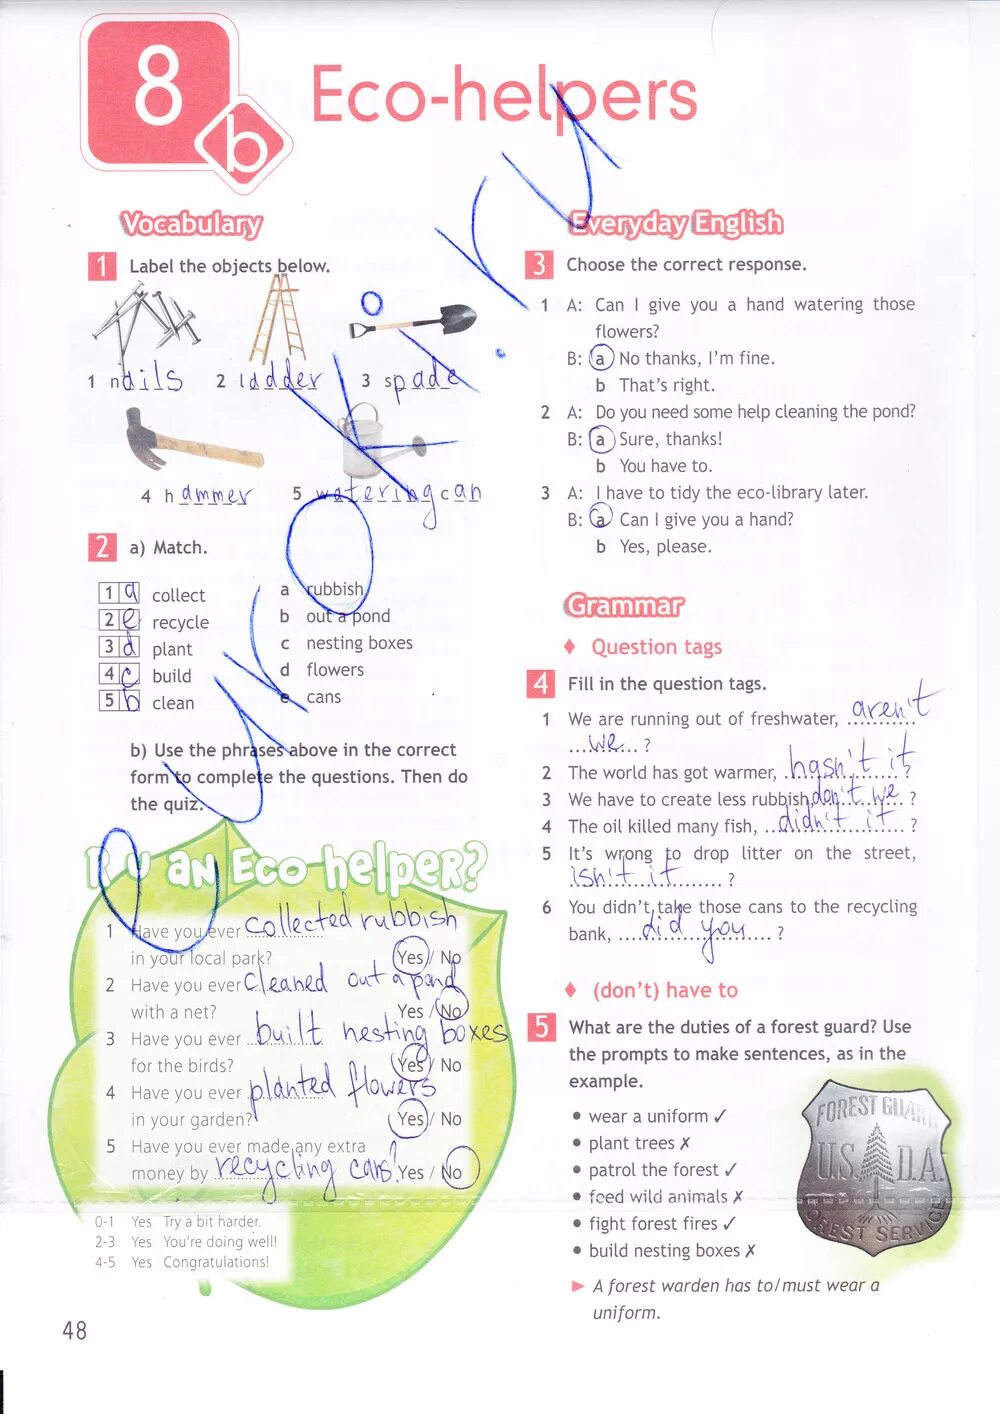 8
b
Eco-helpers
Vocabulary
1 Label the objects below.
1 nails 2 ladder 3 spade
4 hammer 5 watering can
2 a) Match.
1 a collect
2 e recycle
3 d plant
4 c build
5 b clean
a rubbish
b out a pond
c nesting boxes
d flowers
e cans
b) Use the phrases above in the correct
form to complete the questions. Then do
the quiz.
R U AN Eco helper?
1 Have you ever collected rubbish
in your local park? Yes / No
2 Have you ever cleaned out a pond
with a net? Yes / No
3 Have you ever built nesting boxes
for the birds? Yes / No
4 Have you ever planted flowers
in your garden? Yes / No
5 Have you ever made any extra
money by recycling cans? Yes / No
0-1 Yes Try a bit harder.
2-3 Yes You're doing well!
4-5 Yes Congratulations!
48
Everyday English
3 Choose the correct response.
1 A: Can I give you a hand watering those
flowers?
B: a No thanks, I'm fine.
b That's right.
2 A: Do you need some help cleaning the pond?
B: a Sure, thanks!
b You have to.
3 A: I have to tidy the eco-library later.
B: a Can I give you a hand?
b Yes, please.
Grammar
♦ Question tags
4 Fill in the question tags.
1 We are running out of freshwater, aren't
we ?
2 The world has got warmer, hasn't it ?
3 We have to create less rubbish, don't we ?
4 The oil killed many fish, didn't it ?
5 It's wrong to drop litter on the street,
isn't it ?
6 You didn't take those cans to the recycling
bank, did you ?
♦ (don't) have to
5 What are the duties of a forest guard? Use
the prompts to make sentences, as in the
example.
• wear a uniform ✓
• plant trees ✗
• patrol the forest ✓
• feed wild animals ✗
• fight forest fires ✓
• build nesting boxes ✗
► A forest warden has to/must wear a
uniform.
FOREST GUARD
U.S. D.A.
FOREST SERVICE
eurokI.ru